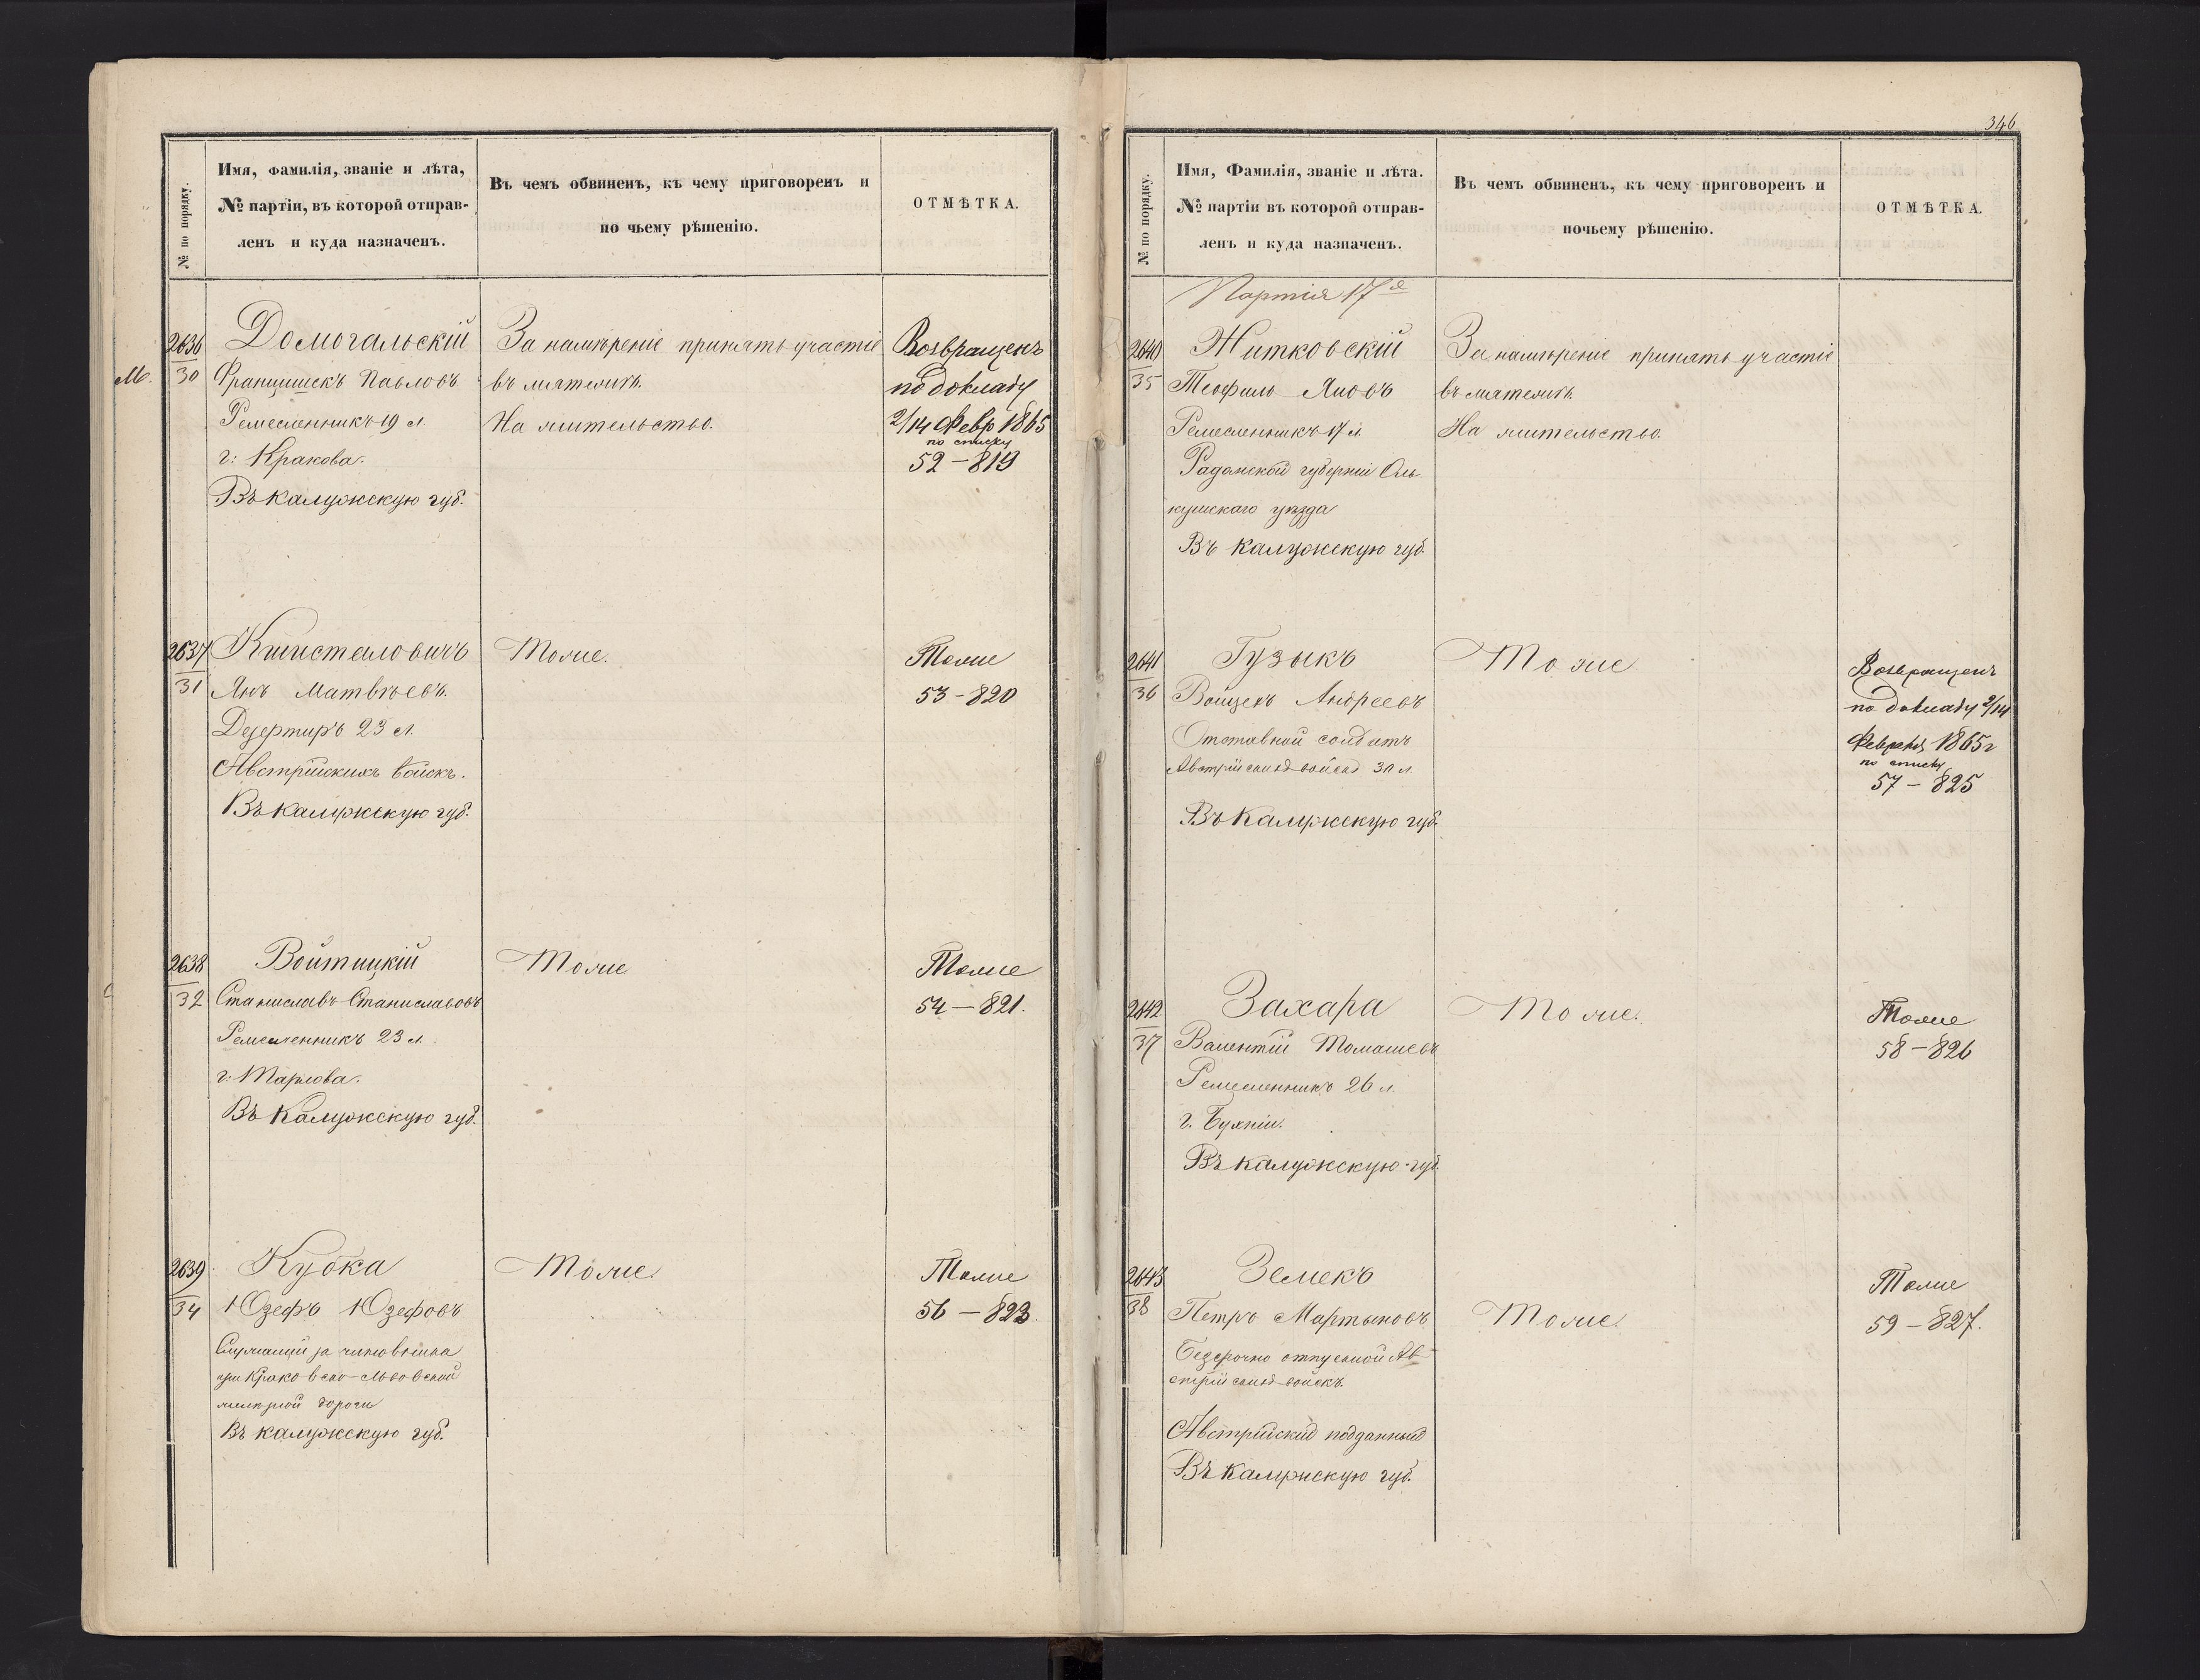 346
№ по порядку.
Имя, фамилія, званіе и лѣта,
№ партіи, въ которой отправ-
ленъ и куда назначенъ.
Въ чемъ обвиненъ, къ чему приговоренъ и
по чьему рѣшенію.
ОТМѢТКА.
М.
2636
30
Домогальскій
Францишекъ Павловъ
Ремесленникъ 19 л.
г: Кракова.
Въ Калужскую губ.
За намѣреніе принять участіе
въ мятежѣ.
На жительство.
Возвращенъ
по докладу
2/14 Февр 1865
по списку
52 – 819
2637
31
Янъ Матвѣевъ.
Дезертиръ 23 л.
Австрійскихъ войскъ.
Въ Калужскую губ.
Тоже.
Тоже
53 – 820
2638
32
Войтицкій
Станиславъ Станиславовъ
Ремесленникъ 23 л.
г: Тарнова.
Въ Калужскую губ.
Тоже
Тоже
54 – 821.
2639
34
Кубка
Юзефъ Юзефовъ
Служащій за чиновника
при Краковско-Львовской
желѣзной дороги
Въ Калужскую губ.
Тоже.
Тоже
56 – 823.
№ по порядку.
Имя, Фамилія, званіе и лѣта.
№ партіи въ которой отправ-
ленъ и куда назначенъ.
Въ чемъ обвиненъ, къ чему приговоренъ и
почьему рѣшенію.
ОТМѢТКА.
Партія 17я
2640
35
Житковскій
Теофиль Яновъ
Ремесленникъ 17 л.
Радомской губерніи Оль
кушскаго уѣзда
Въ Калужскую губ.
За намѣреніе принять участіе
въ мятежѣ.
На жительство.
2641
36
Гузыкъ
Войцехъ Андреевъ
Отставной солдатъ
Австрійскихъ войскъ 30 л.
Въ Калужскую губ.
Тоже
Возвращенъ
по докладу 2/14
Февраля 1865 г
по списку
57 – 825
2642
37
Захара
Валентій Томашевъ
Ремесленникъ 26 л.
г. Бухніи.
Въ Калужскую губ.
Тоже.
Тоже
58 – 826
2643
38
Земекъ
Петръ Мартыновъ
Безсрочно отпускной Ав
стрійскихъ войскъ.
Австрійскій подданный
Въ Калужскую губ.
Тоже.
Тоже
59 – 827.